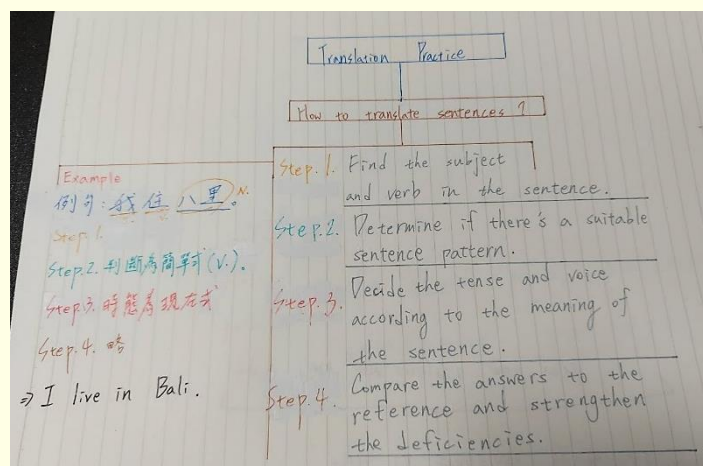 Translation Practice
How to translate sentences ?
Example
例句：我住八里。 N.
Step 1.
Step.2. 判斷為簡單式(V.).
Step.3. 時態為現在式
Step.4. 略
⇒ I live in Bali.
Step.1. Find the subject
and verb in the sentence.
Step.2. Determine if there's a suitable
sentence pattern.
Step.3. Decide the tense and voice
according to the meaning of
the sentence.
Step.4. Compare the answers to the
reference and strengthen
the deficiencies.